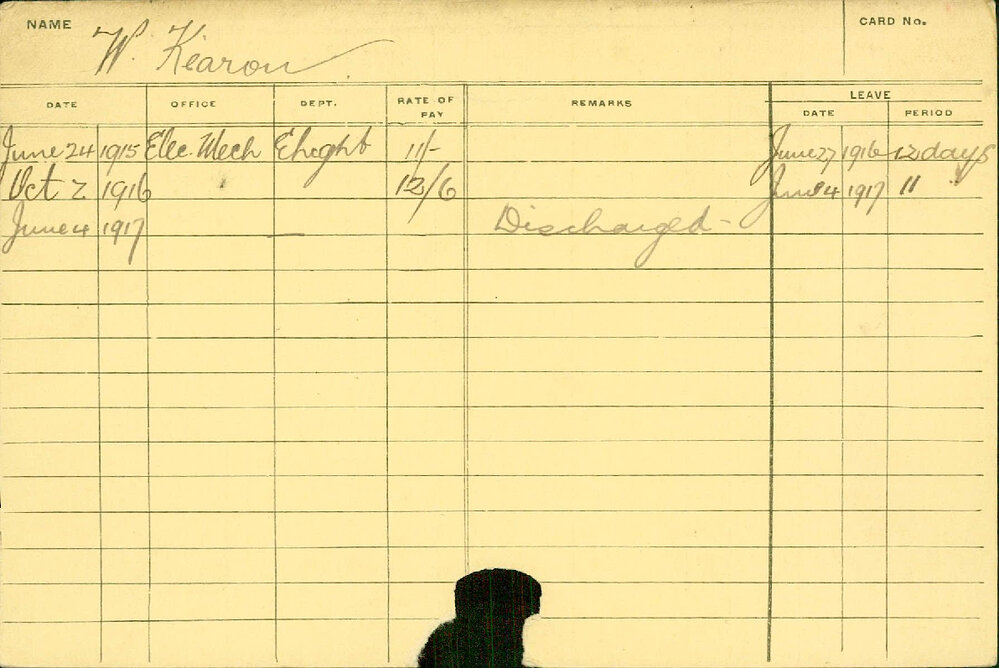 NAME W. Kearon CARD No.
LEAVE
DATE OFFICE DEPT. RATE OF PAY REMARKS DATE PERIOD
June 24 1915 Elec. Mech 11/- June 27 1916 12 days
Oct 2 1916 12/6 June 4 1917 11 "
June 4 1917 Discharged -